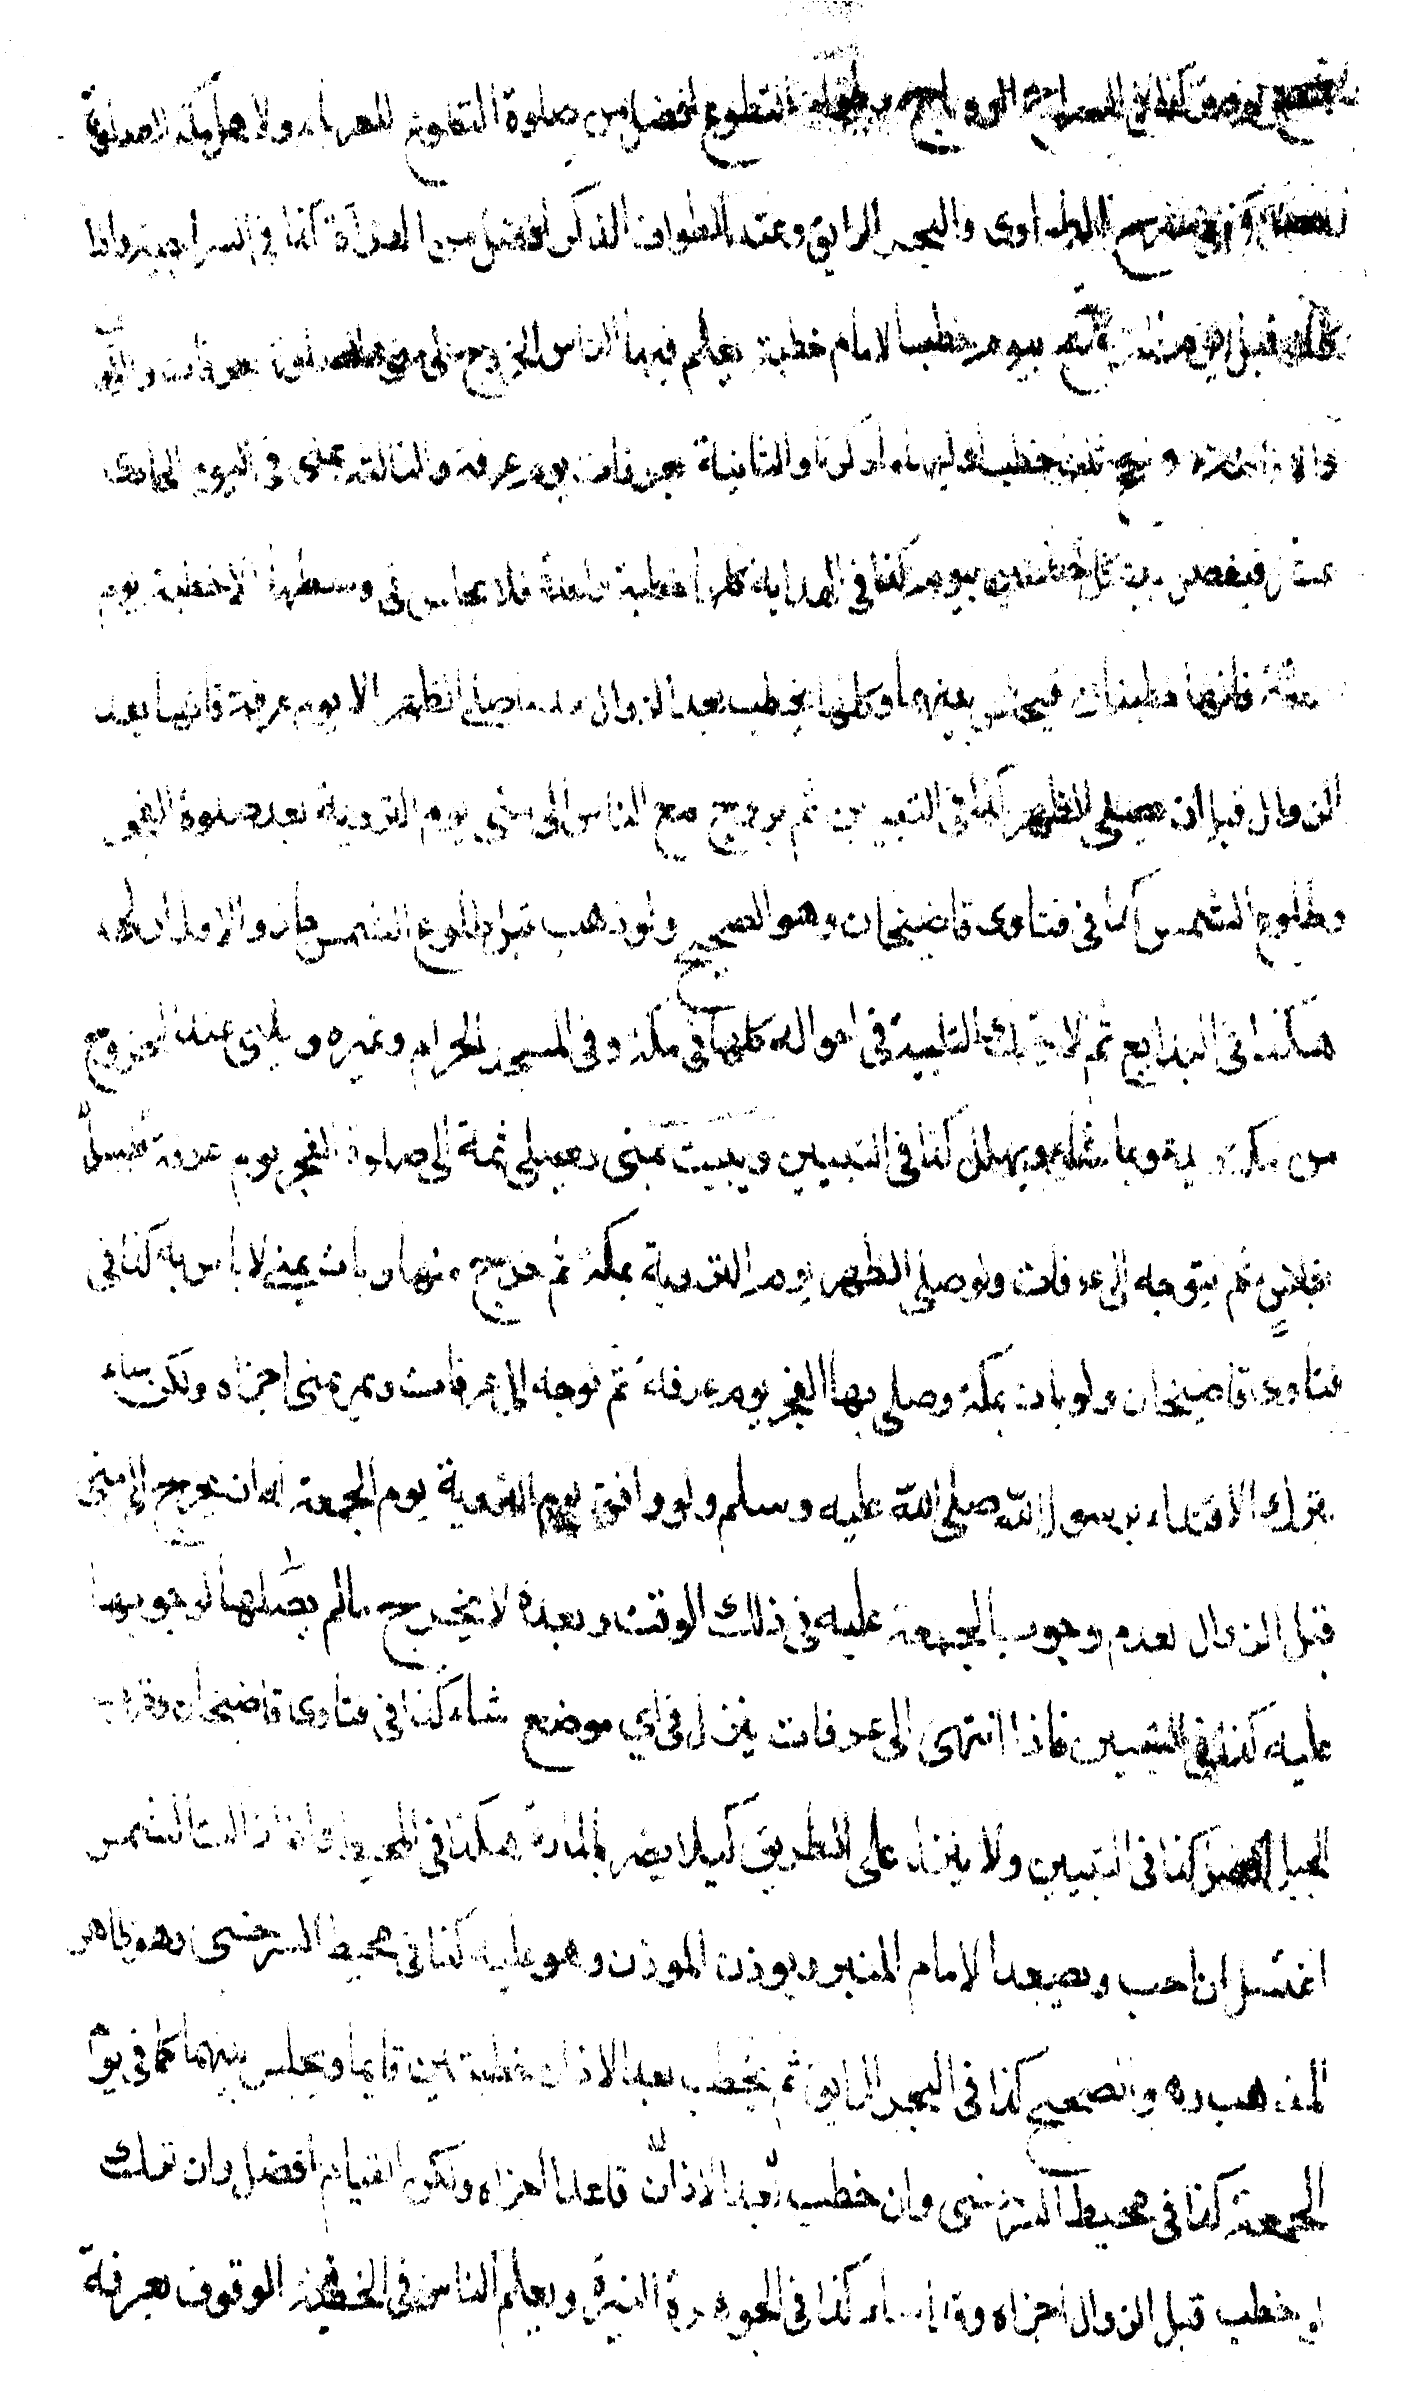 التطوع افضل من صلوة التطوع للغرباء ولاهل مكة الصلوة
شرح الطحاوى والبحر الرايق وعند الطواف الذكر افضل من القراءة كذا فى السراجية واذا
كان قبل يوم التروية بيوم خطب الامام خطبة يعلم فيها الناس الخروج الى منى والصلوة بعرفات و
والافاضة و فى الحج ثلث خطب اوليها ما ذكرنا والثانية بعرفات يوم عرفة والثالثة بمنى فى اليوم الحادى
عشر فيفصل بين كل خطبتين بيوم كذا فى الهداية كلها خطبة واحدة فلا يجلس فى وسطها الا خطبة يوم
عرفة فانها خطبتان فيجلس بينهما وكلها يخطب بعد الزوال بعد ما صلى الظهر الا يوم عرفة فانها بعد
الزوال قبل ان يصلى الظهر كذا فى التبيين ثم يروح مع الناس الى منى يوم التروية بعد صلوة الفجر
وطلوع الشمس كذا فى فتاوى قاضيخان وهو الصحيح ولو ذهب قبل طلوع الشمس جاز والاول اولى
هكذا فى البدايع ثم لا يترك التلبية فى احواله كلها فى مكة وفى المسجد الحرام وغيره ويلبى عند الخروج
من مكة ويدعو بما شاء ويهلل كذا فى التبيين ويبيت بمنى ويصلى ثمة الى صلوة الفجر يوم عرفة
بغلس ثم يتوجه الى عرفات ولو صلى الظهر يوم التروية بمكة ثم خرج منها وبات بمنى لا باس به كذا فى
فتاوى قاضيخان ولو بات بمكة وصلى بها الفجر يوم عرفة ثم توجه الى عرفات ومر بمنى اجزاه ولكن ساء
بترك الاقتداء برسول الله صلى الله عليه وسلم ولو وافق يوم التروية يوم الجمعة له ان يخرج الى منى
قبل الزوال لعدم وجوب الجمعة عليه فى ذلك الوقت وبعده لا يخرج مالم يصلها لوجوبها
عليه كذا فى التبيين فاذا انتهى الى عرفات ينزل فى اي موضع شاء كذا فى فتاوى قاضيخان وقرب
الجبل افضل كذا فى التبيين ولا ينزل على الطريق كيلا يضر بالمارة هكذا فى المحيط واذا زالت الشمس
اغتسل ان احب ويصعد الامام المنبر ويوذن الموذن وهو عليه كذا فى محيط السرخسى وهو ظاهر
المذهب وهو الصحيح كذا فى البحر الرايق ثم يخطب بعد الاذان خطبتين قايما ويجلس بينهما كما فى يوم
الجمعة كذا فى محيط السرخسى وان خطب بعد الاذان قاعدا اجزاه ولكن القيام افضل وان ترك
او خطب قبل الزوال اجزاه وقد اساء كذا فى الجوهرة النيرة ويعلم الناس فى الخطبة الوقوف بعرفة